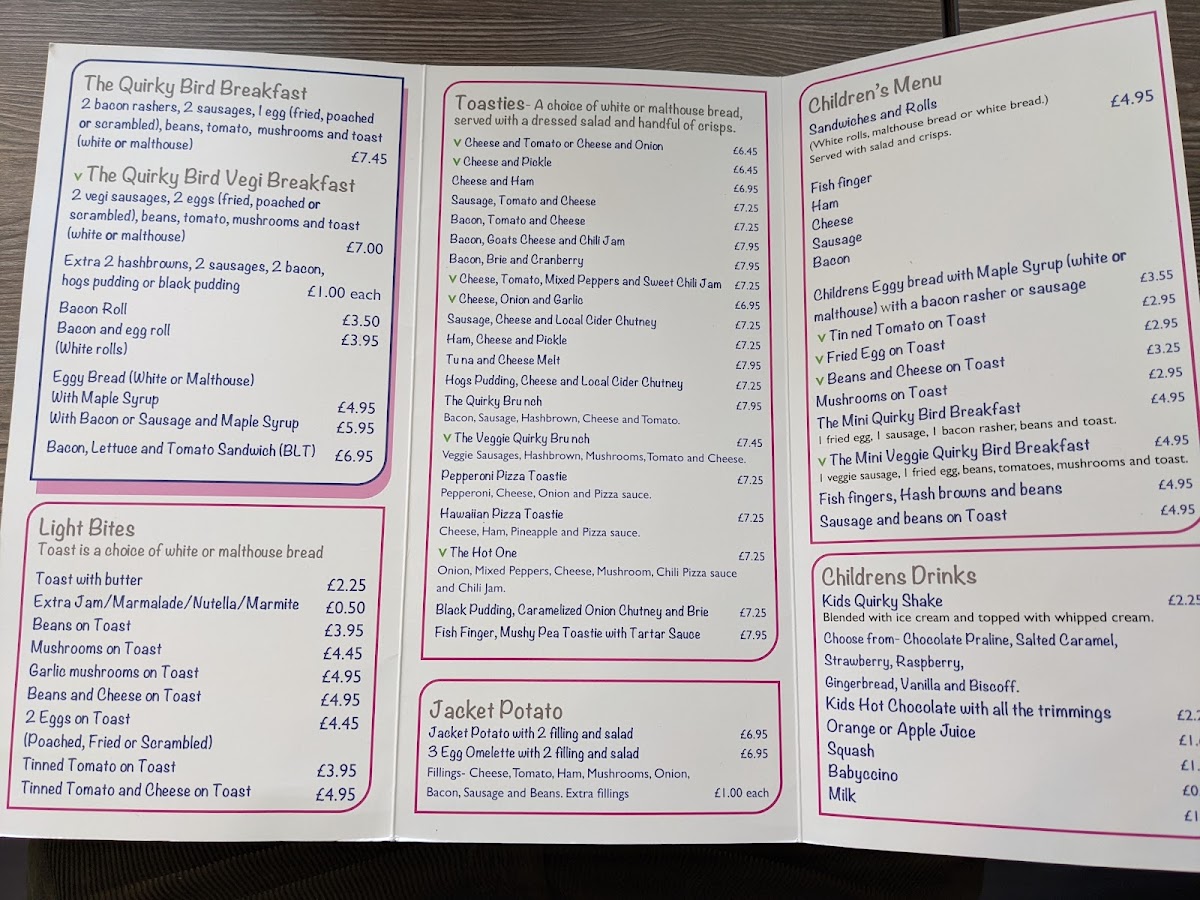 The Quirky Bird Breakfast
2 bacon rashers, 2 sausages, 1 egg (fried, poached
or scrambled), beans, tomato, mushrooms and toast
(white or malthouse)
£7.45
v The Quirky Bird Vegi Breakfast
2 vegi sausages, 2 eggs (fried, poached or
scrambled), beans, tomato, mushrooms and toast
(white or malthouse)
£7.00
Extra 2 hashbrowns, 2 sausages, 2 bacon,
hogs pudding or black pudding £1.00 each
Bacon Roll £3.50
Bacon and egg roll £3.95
(White rolls)
Eggy Bread (White or Malthouse)
With Maple Syrup £4.95
With Bacon or Sausage and Maple Syrup £5.95
Bacon, Lettuce and Tomato Sandwich (BLT) £6.95
Light Bites
Toast is a choice of white or malthouse bread
Toast with butter £2.25
Extra Jam/Marmalade/Nutella/Marmite £0.50
Beans on Toast £3.95
Mushrooms on Toast £4.45
Garlic mushrooms on Toast £4.95
Beans and Cheese on Toast £4.95
2 Eggs on Toast £4.45
(Poached, Fried or Scrambled)
Tinned Tomato on Toast £3.95
Tinned Tomato and Cheese on Toast £4.95
Toasties- A choice of white or malthouse bread,
served with a dressed salad and handful of crisps.
v Cheese and Tomato or Cheese and Onion £6.45
v Cheese and Pickle £6.45
Cheese and Ham £6.95
Sausage, Tomato and Cheese £7.25
Bacon, Tomato and Cheese £7.25
Bacon, Goats Cheese and Chili Jam £7.95
Bacon, Brie and Cranberry £7.95
v Cheese, Tomato, Mixed Peppers and Sweet Chili Jam £7.25
v Cheese, Onion and Garlic £6.95
Sausage, Cheese and Local Cider Chutney £7.25
Ham, Cheese and Pickle £7.25
Tuna and Cheese Melt £7.95
Hogs Pudding, Cheese and Local Cider Chutney £7.25
The Quirky Brunch £7.95
Bacon, Sausage, Hashbrown, Cheese and Tomato.
v The Veggie Quirky Brunch £7.45
Veggie Sausages, Hashbrown, Mushrooms, Tomato and Cheese.
Pepperoni Pizza Toastie £7.25
Pepperoni, Cheese, Onion and Pizza sauce.
Hawaiian Pizza Toastie £7.25
Cheese, Ham, Pineapple and Pizza sauce.
v The Hot One £7.25
Onion, Mixed Peppers, Cheese, Mushroom, Chili Pizza sauce
and Chili Jam.
Black Pudding, Caramelized Onion Chutney and Brie £7.25
Fish Finger, Mushy Pea Toastie with Tartar Sauce £7.95
Jacket Potato
Jacket Potato with 2 filling and salad £6.95
3 Egg Omelette with 2 filling and salad £6.95
Fillings- Cheese, Tomato, Ham, Mushrooms, Onion,
Bacon, Sausage and Beans. Extra fillings £1.00 each
Children's Menu
Sandwiches and Rolls £4.95
(White rolls, malthouse bread or white bread.)
Served with salad and crisps.
Fish finger
Ham
Cheese
Sausage
Bacon
Childrens Eggy bread with Maple Syrup (white or
malthouse) with a bacon rasher or sausage £3.55
v Tinned Tomato on Toast £2.95
v Fried Egg on Toast £2.95
v Beans and Cheese on Toast £3.25
Mushrooms on Toast £2.95
The Mini Quirky Bird Breakfast £4.95
1 fried egg, 1 sausage, 1 bacon rasher, beans and toast.
v The Mini Veggie Quirky Bird Breakfast £4.95
1 veggie sausage, 1 fried egg, beans, tomatoes, mushrooms and toast.
Fish fingers, Hash browns and beans £4.95
Sausage and beans on Toast £4.95
Childrens Drinks
Kids Quirky Shake £2.25
Blended with ice cream and topped with whipped cream.
Choose from- Chocolate Praline, Salted Caramel,
Strawberry, Raspberry,
Gingerbread, Vanilla and Biscoff.
Kids Hot Chocolate with all the trimmings
Orange or Apple Juice
Squash
Babyccino
Milk